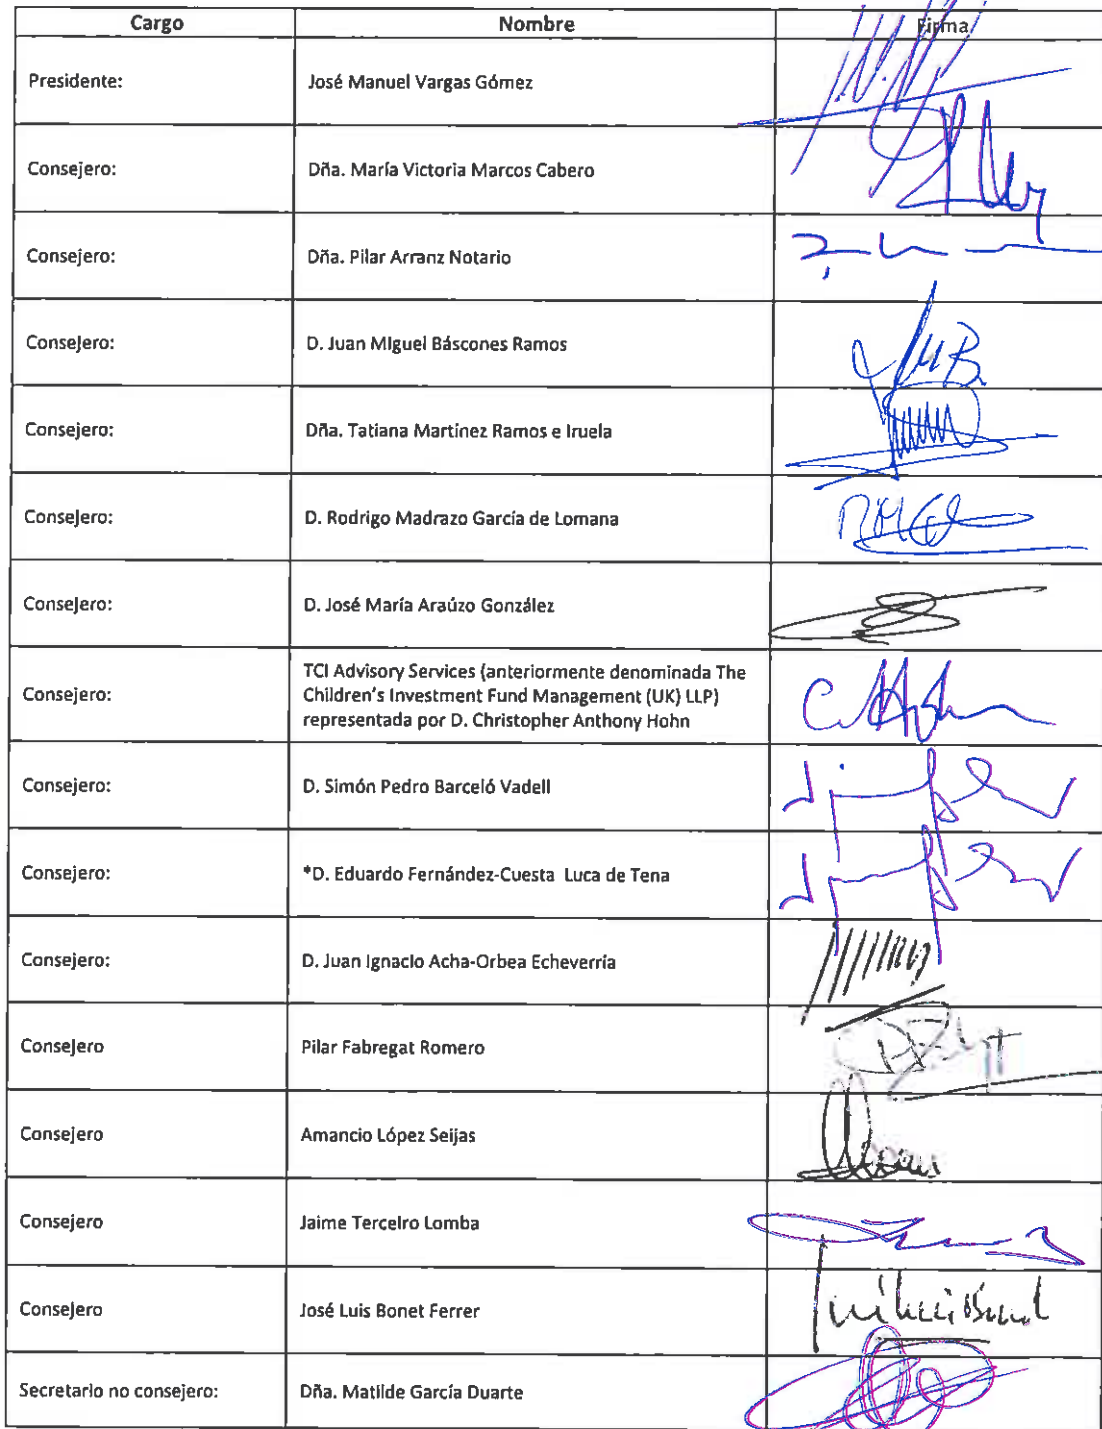 Cargo Nombre Firma
Presidente: José Manuel Vargas Gómez
Consejero: Dña. María Victoria Marcos Cabero
Consejero: Dña. Pilar Arranz Notario
Consejero: D. Juan Miguel Báscones Ramos
Consejero: Dña. Tatiana Martínez Ramos e Iruela
Consejero: D. Rodrigo Madrazo García de Lomana
Consejero: D. José María Araúzo González
Consejero: TCI Advisory Services (anteriormente denominada The
Children's Investment Fund Management (UK) LLP)
representada por D. Christopher Anthony Hohn
Consejero: D. Simón Pedro Barceló Vadell
Consejero: *D. Eduardo Fernández-Cuesta Luca de Tena
Consejero: D. Juan Ignacio Acha-Orbea Echeverría
Consejero Pilar Fabregat Romero
Consejero Amancio López Seijas
Consejero Jaime Terceiro Lomba
Consejero José Luis Bonet Ferrer
Secretario no consejero: Dña. Matilde García Duarte